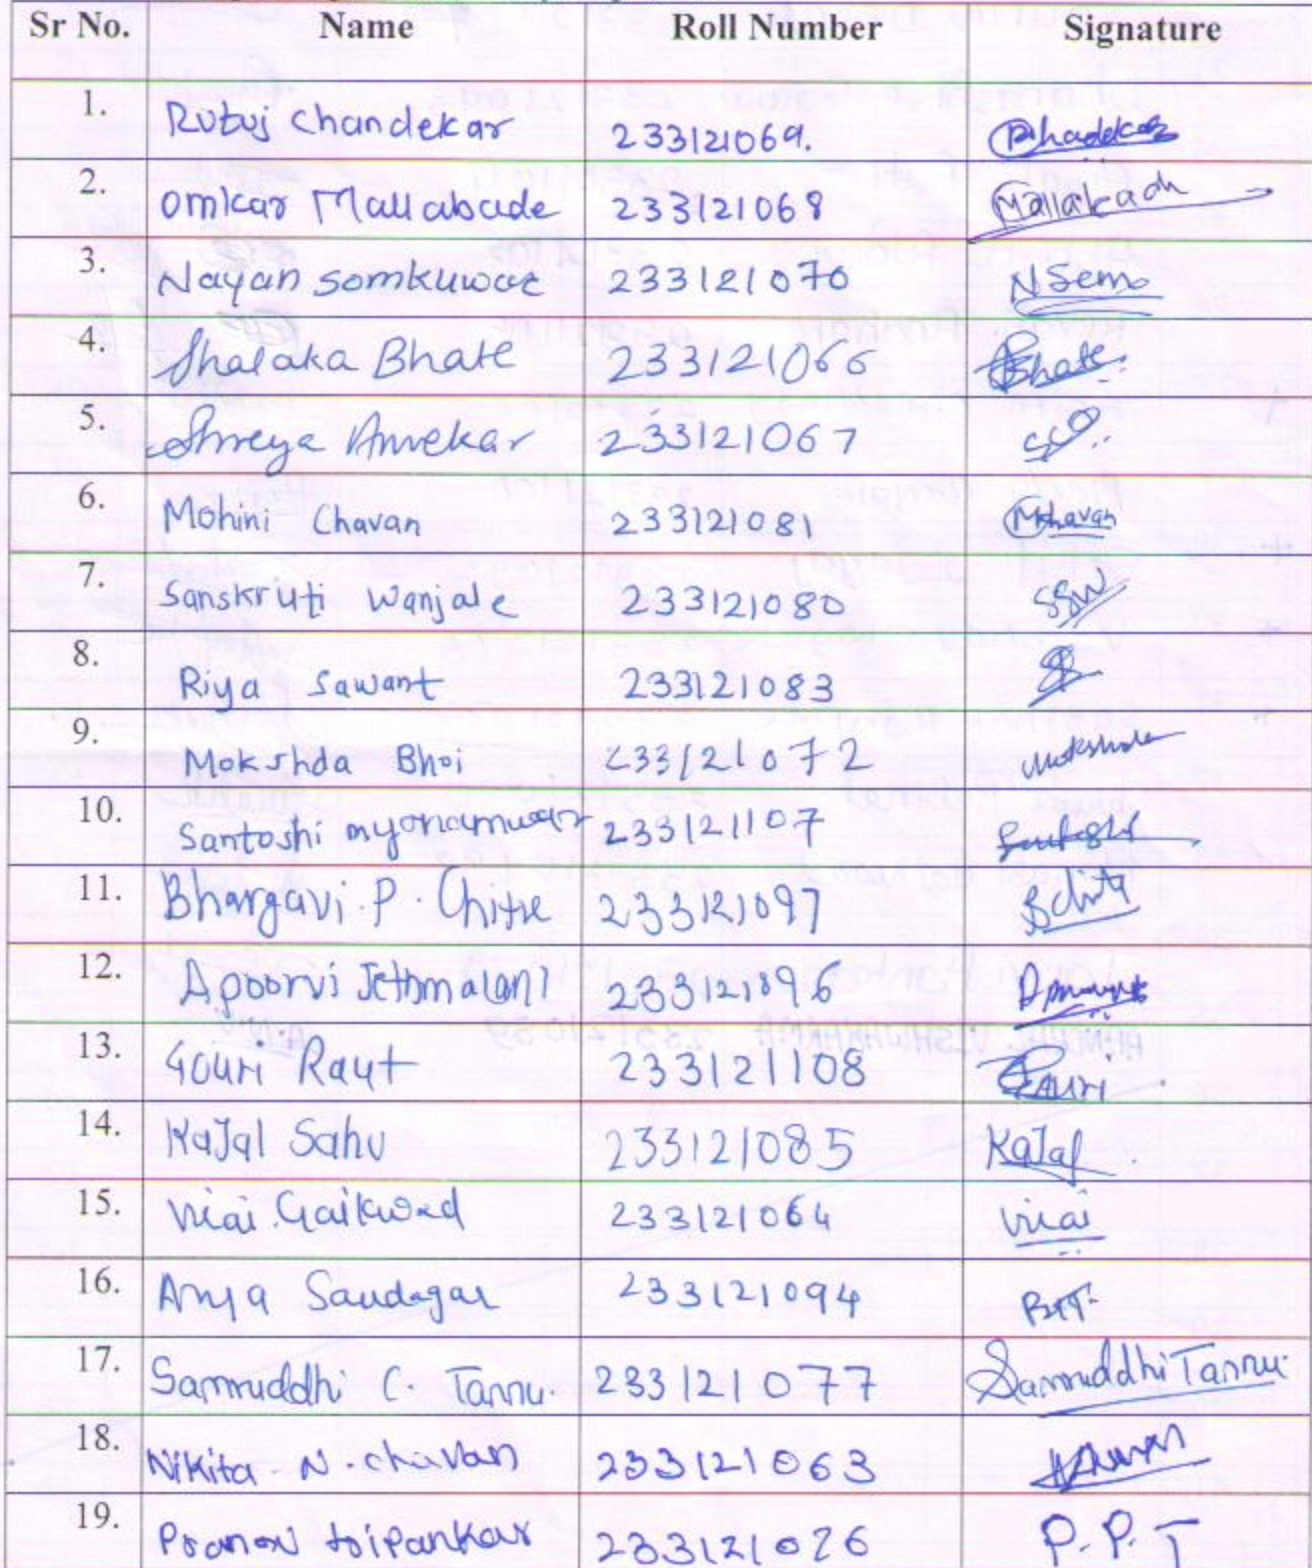 Sr No. Name Roll Number Signature
1. Rutuj Chandekar 233121069.
2. Omkar Mallabade 233121068 Mallabade
3. Nayan somkuwar 233121070 NSom
4. Shalaka Bhate 233121066 Bhate
5. Shreya Anvekar 233121067
6. Mohini Chavan 233121081 MChavan
7. Sanskruti Wanjale 233121080 SSW
8. Riya Sawant 233121083
9. Mokshda Bhoi 233121072 Mokshda
10. Santoshi 233121107
11. Bhargavi P. Chitre 233121097
12. Apoorvi Jethmalani 233121096
13. Gouri Raut 233121108 Gauri
14. KaJal Sahu 233121085 KaJal
15. Gaikwad 233121064
16. Saudagar 233121094
17. Samruddhi C. Tannu. 233121077 Samruddhi Tannu
18. Nikita N. chavan 233121063
19. 233121026 P. P. T